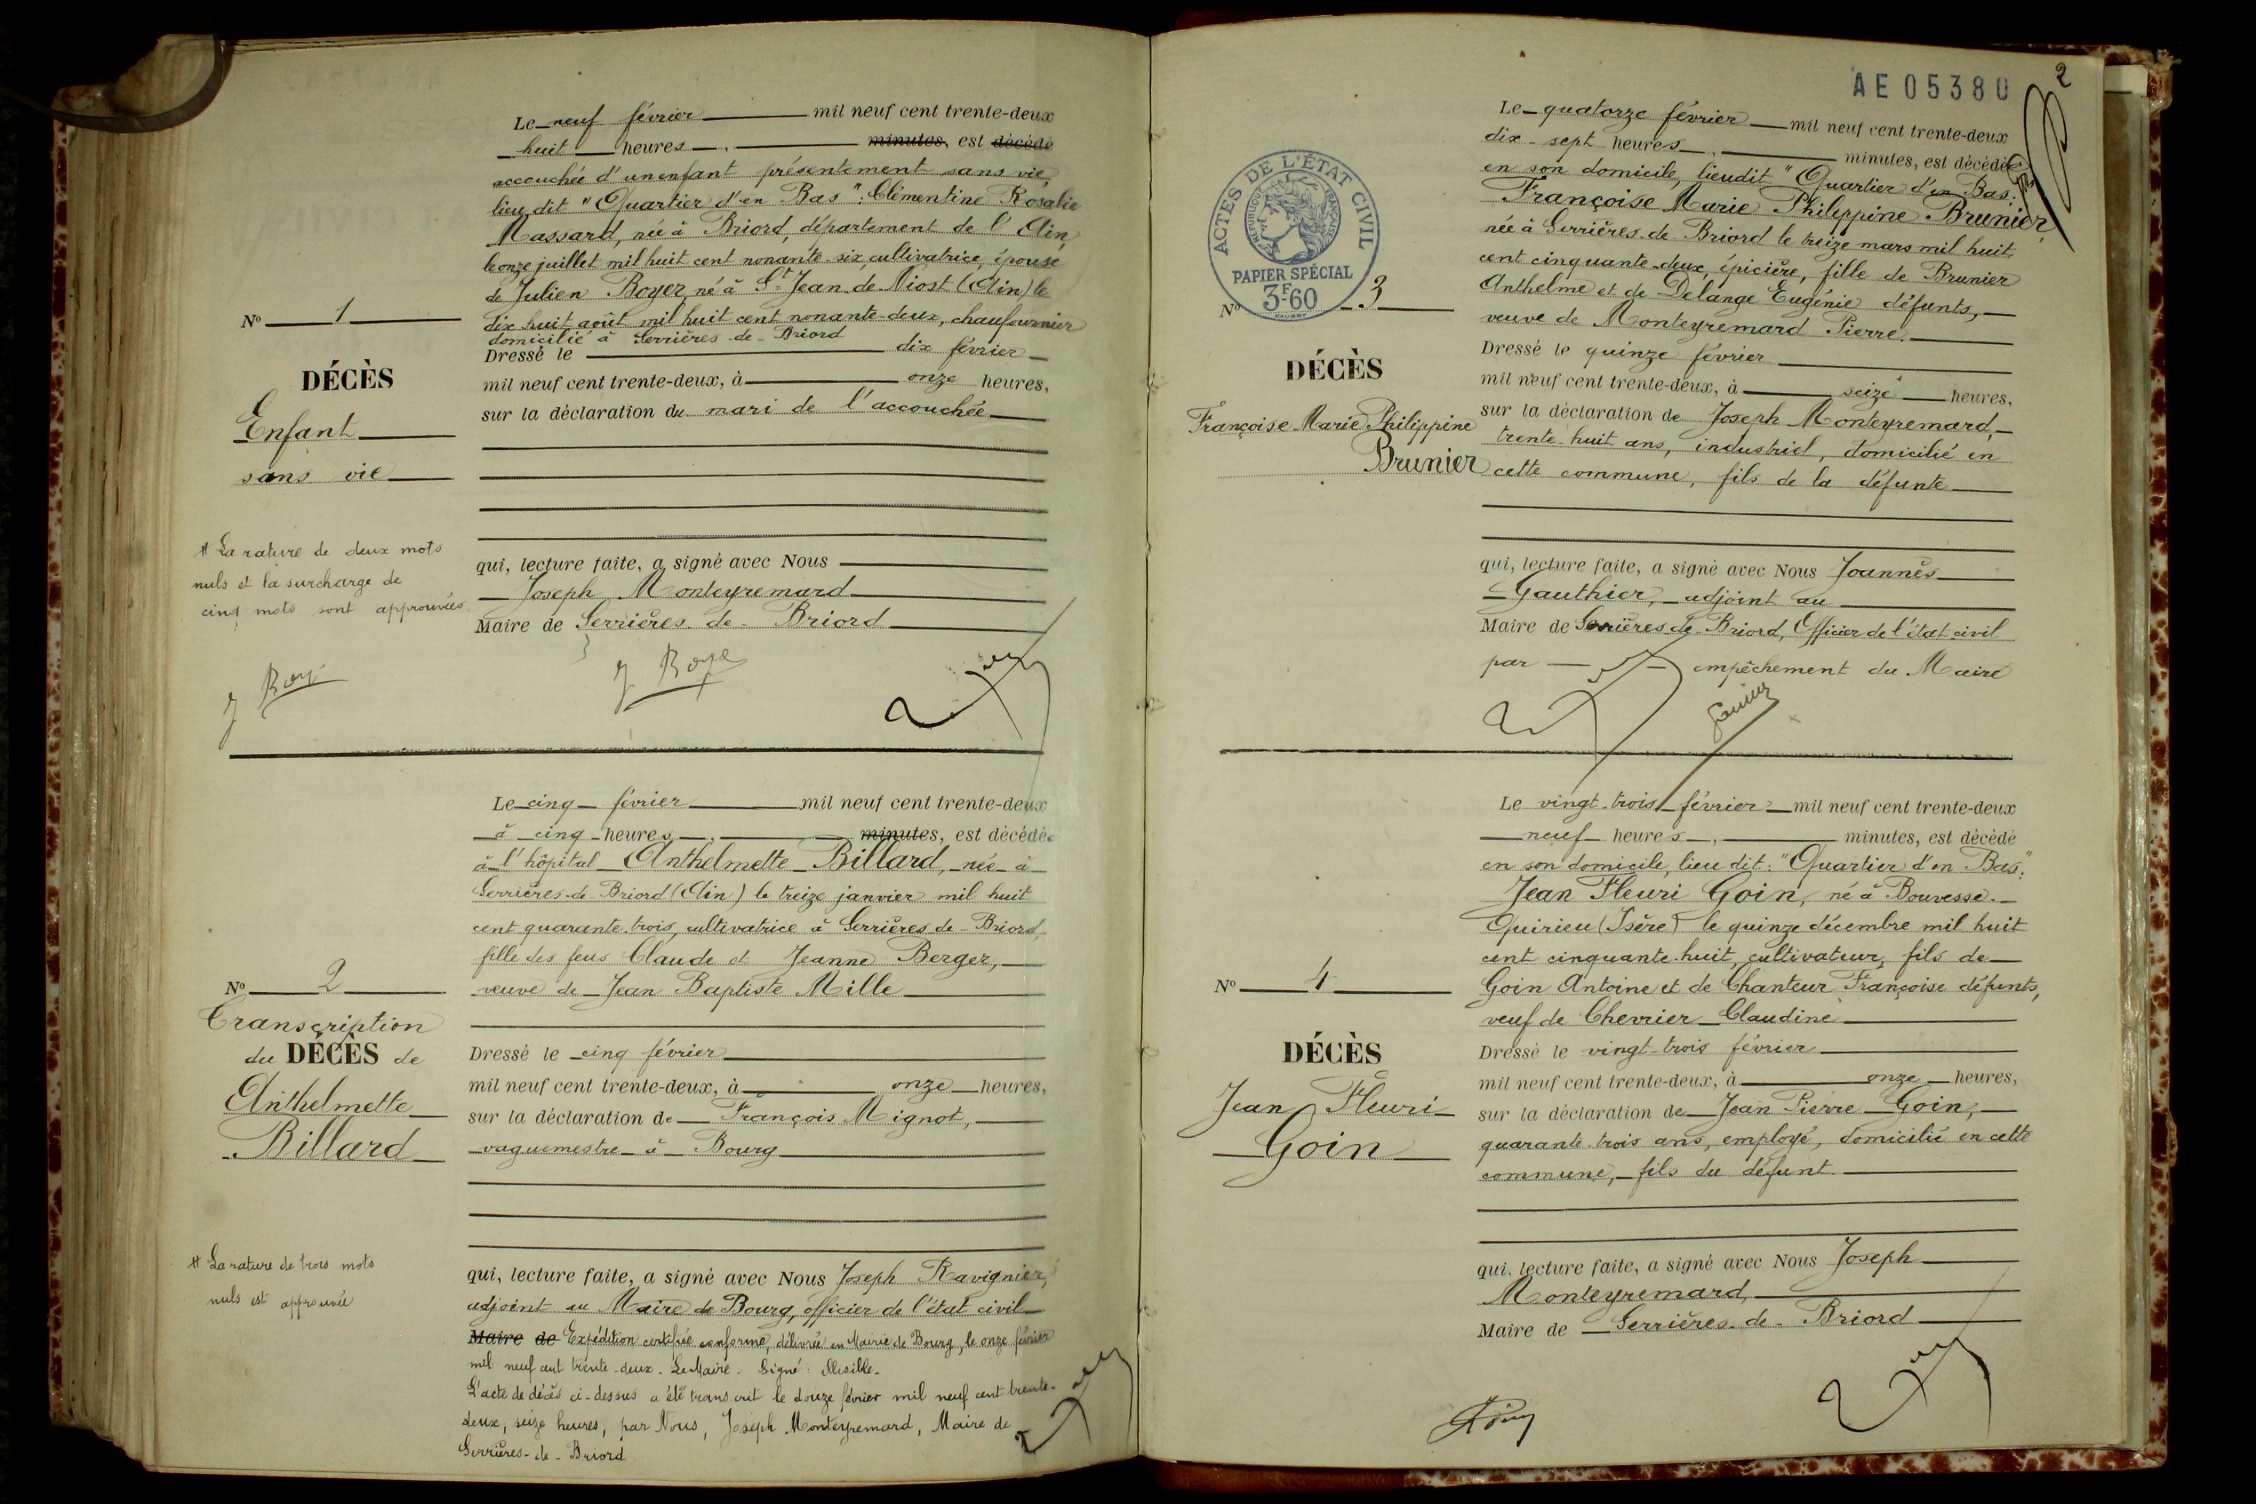 Le neuf février mil neuf cent trente-deux
huit heures, minutes, est décédé
accouchée d'un enfant présentement sans vie,
lieu dit "Quartier d'en Bas": Clémentine Rosalie
Massard, née à Briord, département de l'Ain,
le onze juillet mil huit cent nonante-six, cultivatrice, épouse
de Julien Boyer, né à St Jean de Niost (Ain) le
dix huit août mil huit cent nonante-deux, chaufournier
domicilié à Serrières-de-Briord
Dressé le dix février
mil neuf cent trente-deux, à onze heures,
sur la déclaration du mari de l'accouchée
qui, lecture faite, a signé avec Nous
Joseph Monteyremard
Maire de Serrières-de-Briord
No 1
DÉCÈS
Enfant
sans vie
La rature de deux mots
nuls et la surcharge de
cinq mots sont approuvées
Le cinq février mil neuf cent trente-deux
à cinq heures, minutes, est décédée
à l'hôpital Anthelmette Billard, née à
Serrières-de-Briord (Ain) le treize janvier mil huit
cent quarante-trois, cultivatrice à Serrières-de-Briord,
fille des feus Claude et Jeanne Berger,
veuve de Jean Baptiste Mille
Dressé le cinq février
mil neuf cent trente-deux, à onze heures,
sur la déclaration de François Mignot,
vaguemestre à Bourg
qui, lecture faite, a signé avec Nous Joseph Ravignier,
adjoint au Maire de Bourg, officier de l'état civil
Maire de Expédition certifiée conforme, délivrée en Mairie de Bourg, le onze février
mil neuf cent trente-deux. Le Maire. Signé:
L'acte de décès ci-dessus a été transcrit le douze février mil neuf cent trente-
deux, seize heures, par Nous, Joseph Monteyremard, Maire de
Serrières-de-Briord
No 2
Transcription
du DÉCÈS de
Anthelmette
Billard
La rature de trois mots
nuls est approuvée
AE 05380
2
ACTES DE L'ÉTAT CIVIL
RÉPUBLIQUE FRANÇAISE
PAPIER SPÉCIAL
3F60
Le quatorze février mil neuf cent trente-deux
dix-sept heures, minutes, est décédée
en son domicile, lieudit "Quartier d'en Bas:
Françoise Marie Philippine Brunier,
née à Serrières-de-Briord le treize mars mil huit
cent cinquante-deux, épicière, fille de Brunier
Anthelme et de Delange Eugénie défunts,
veuve de Monteyremard Pierre.
Dressé le quinze février
mil neuf cent trente-deux, à seize heures,
sur la déclaration de Joseph Monteyremard,
trente-huit ans, industriel, domicilié en
cette commune, fils de la défunte
qui, lecture faite, a signé avec Nous Joannès
Gauthier, adjoint au
Maire de Serrières-de-Briord, Officier de l'état civil
par empêchement du Maire
No 3
DÉCÈS
Françoise Marie Philippine
Brunier
Le vingt-trois février mil neuf cent trente-deux
neuf heures, minutes, est décédé
en son domicile, lieu dit: "Quartier d'en Bas":
Jean Fleuri Goin, né à Bouvesse-
Quirieu (Isère) le quinze décembre mil huit
cent cinquante-huit, cultivateur, fils de
Goin Antoine et de Chanteur Françoise défunts,
veuf de Chevrier Claudine
Dressé le vingt-trois février
mil neuf cent trente-deux, à onze heures,
sur la déclaration de Jean Pierre Goin,
quarante-trois ans, employé, domicilié en cette
commune, fils du défunt
qui, lecture faite, a signé avec Nous Joseph
Monteyremard,
Maire de Serrières-de-Briord
No 4
DÉCÈS
Jean Fleuri
Goin